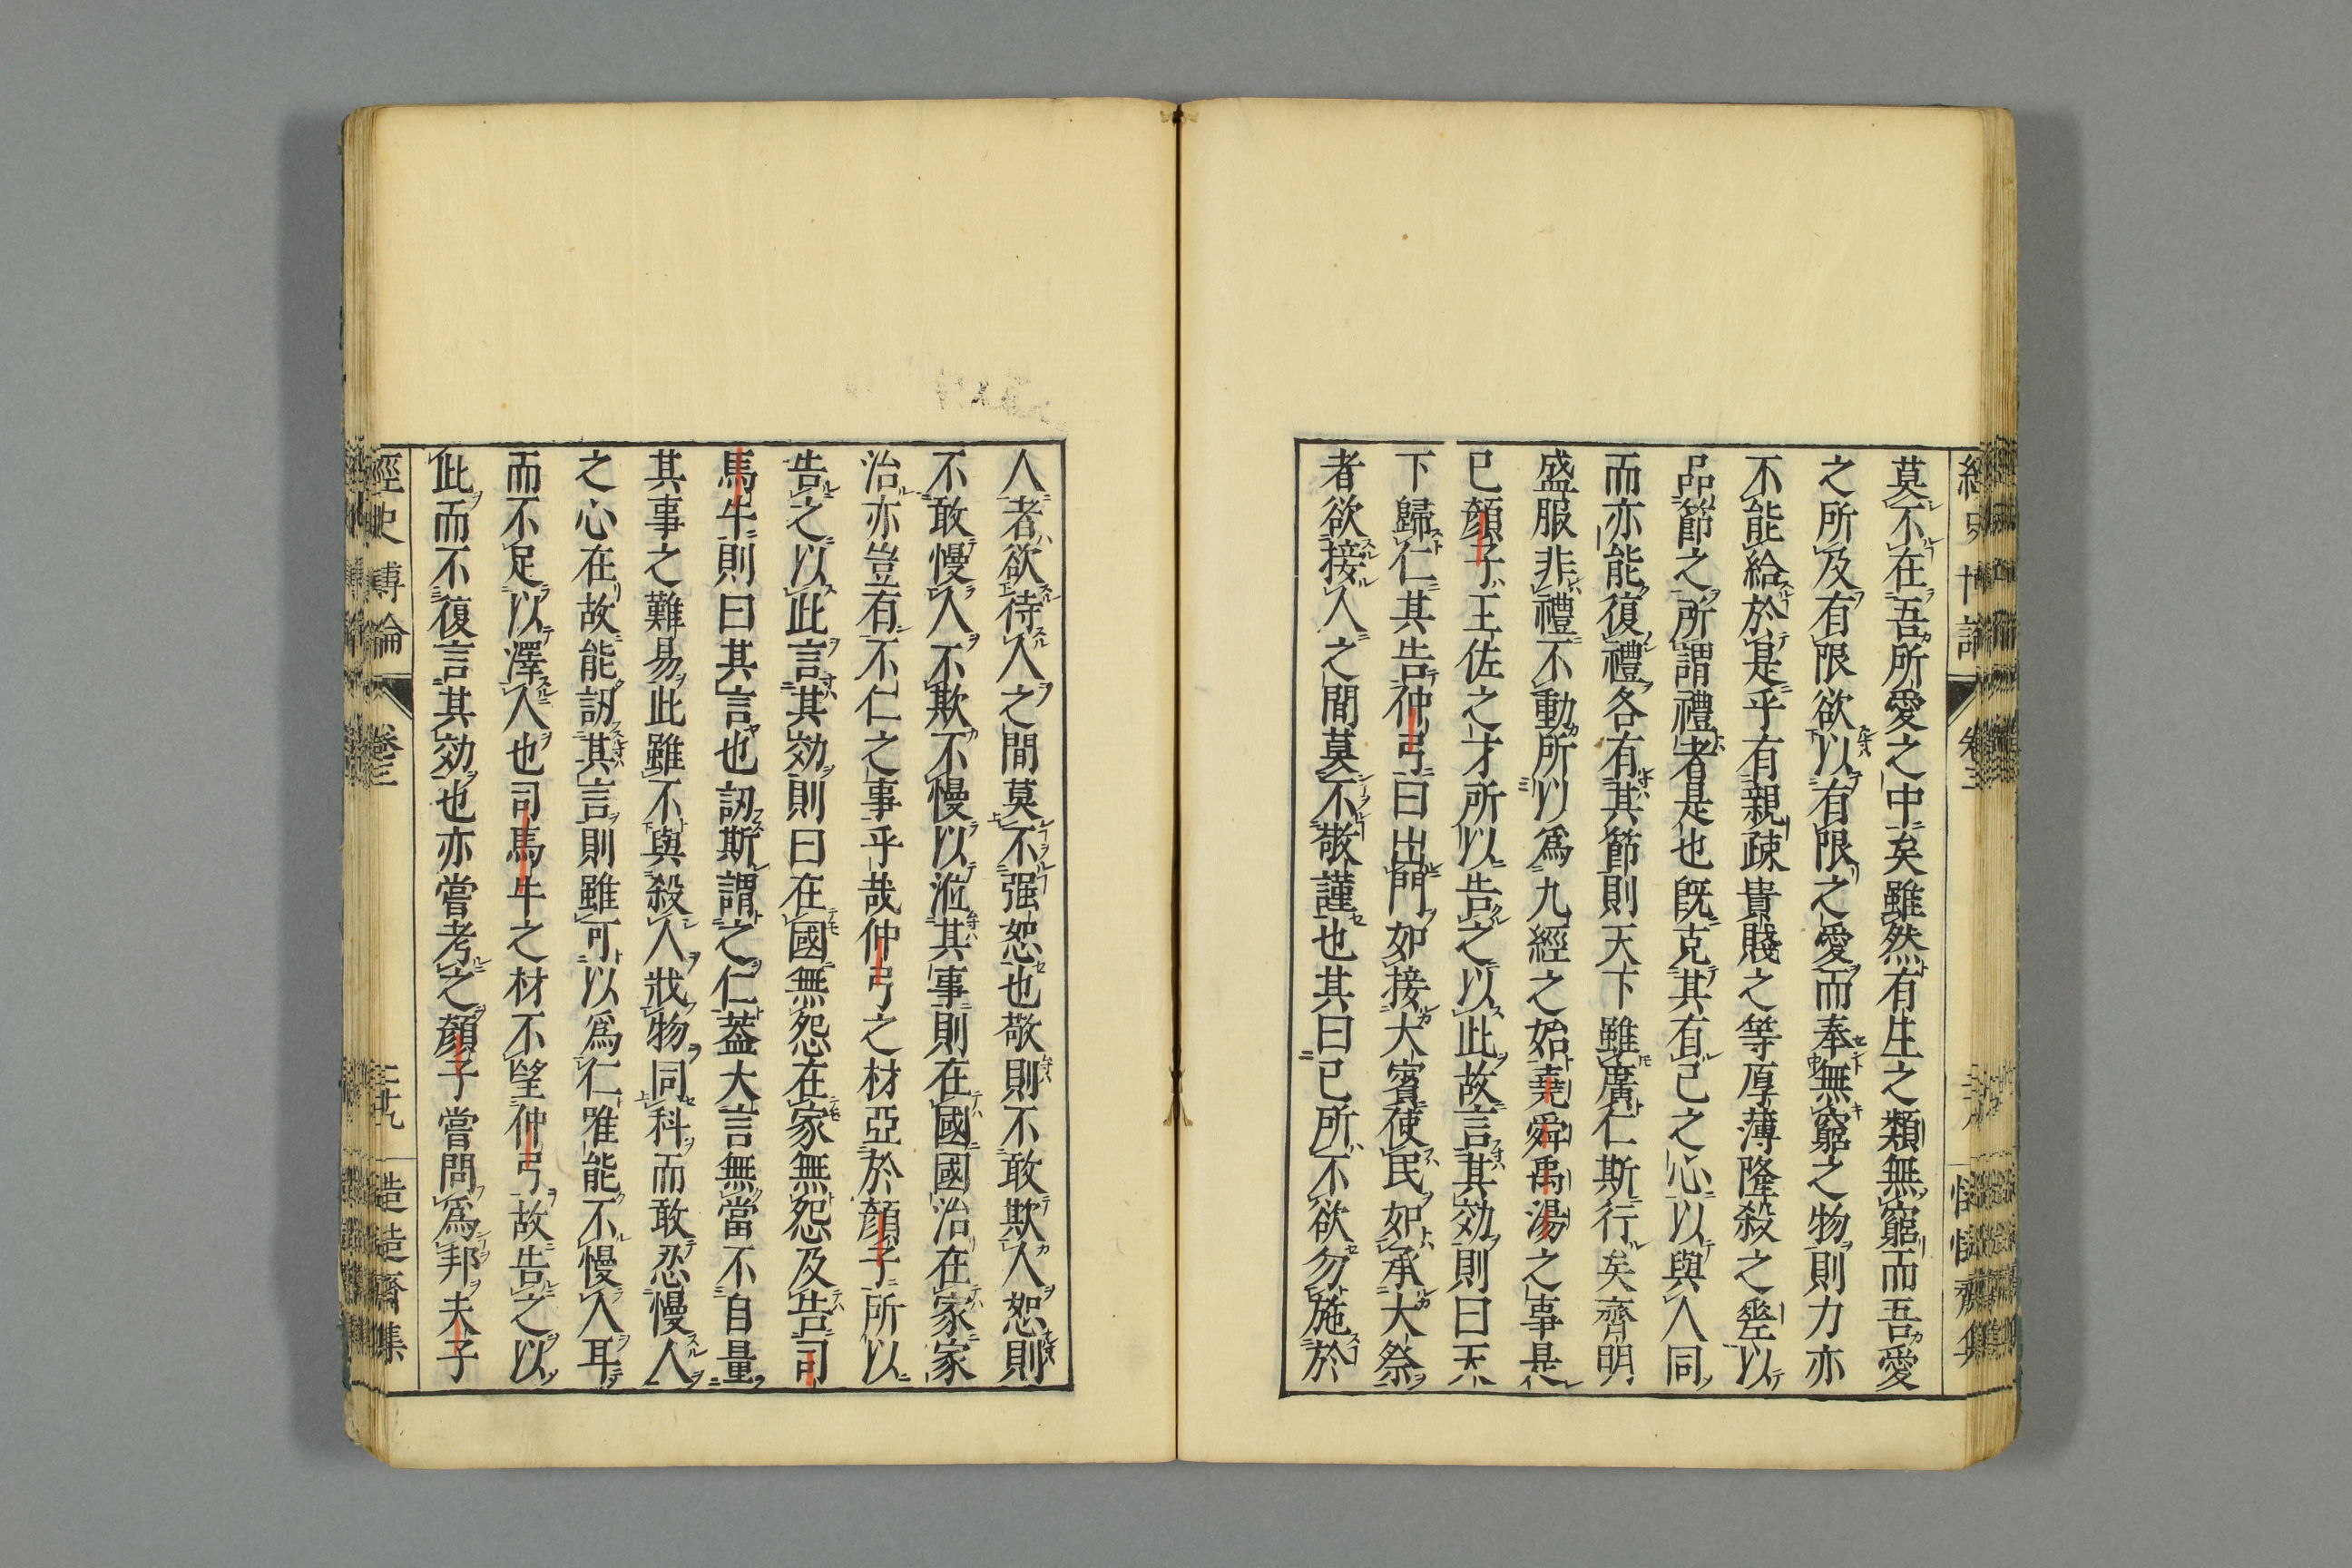 莫不在吾所愛之中矣雖然有生之類無窮而吾愛
之所及有限欲以有限之愛而奉無窮之物則力亦
不能給於是乎有親疎貴賤之等厚薄隆殺之以
品節之所謂禮者是也既克其有己之心以與人同
而亦能復禮各有其節則天下雖廣仁斯行矣齊明
盛服非禮不動所以爲九經之始堯舜禹湯之事是
已顏子王佐之才所以告之以此故言其効則曰天
下歸仁其告仲弓曰出門如接大賓使民如承大祭
者欲接人之間莫不敬謹也其曰己所不欲勿施於
人者欲待人之間莫不强恕也敬則不敢欺人恕則
不敢慢人不欺不慢以涖其事則在國國治在家家
治亦豈有不仁之事乎哉仲弓之材亞於顏子所以
告之以此言其効則曰在國無怨在家無怨及告司
馬牛則曰其言也訒斯謂之仁蓋大言無當不自量
其事之難易此雖不與殺人戕物同科而敢忍慢人
之心在故能訒其言則雖可以爲仁唯能不慢人耳
而不足以澤人也司馬牛之材不望仲弓故告之以
此而不復言其効也亦嘗考之顏子嘗問爲邦夫子
經史博論
卷三
三十九